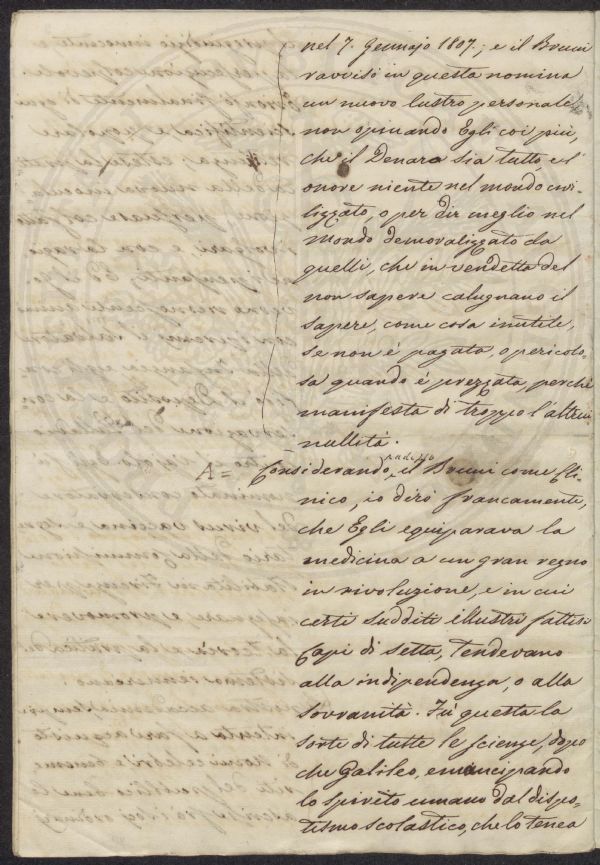 nel 7. Gennajo 1807.; e il Bruni
ravvisò in questa nomina
un nuovo lustro personale,
non opinando Egli coi più,
che il Denaro sia tutto, e l'
onore niente nel mondo civi-
lizzato, o per dir meglio nel
Mondo demoralizzato da
quelli, che in vendetta del
non sapere calugnano il
sapere, come cosa inutile,
se non è pagata, o pericolo-
sa quando è prezzata, perchè
manifesta di troppo l'altrui
nullità.
A = Considerando il Bruni come Cli-
nico, io dirò francamente,
che Egli equiparava la
medicina a un gran regno
in rivoluzione, e in cui
certi sudditi illustri fattisi
Capi di setta, tendevano
alla indipendenza, o alla
sovranità. Fù questa la
sorte di tutte le scienze, dopo
che Galileo, emancipando
lo spirito umano dal dispo-
tismo scolastico, che lo tenea